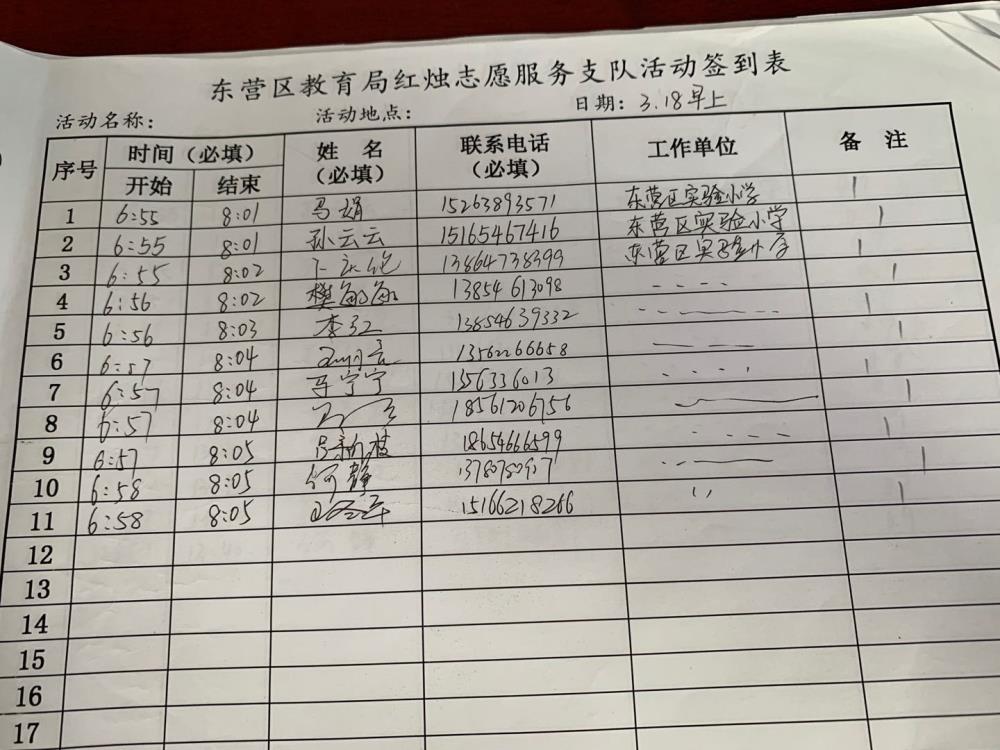 东营区教育局红烛志愿服务支队活动签到表
活动名称: 活动地点: 日期: 3.18早上
序号 时间(必填) 姓 名 (必填) 联系电话 (必填) 工作单位 备 注
开始 结束
1 6:55 8:01 马娟 15263893571 东营区实验小学 1
2 6:55 8:01 孙云云 15165467416 东营区实验小学 1
3 6:55 8:02 13864738399 东营区实验小学 1
4 6:56 8:02 樊 13854613098 1
5 6:56 8:03 李红 13854639332 1
6 6:57 8:04 13562266658 1
7 6:57 8:04 宁宁 1556336013 1
8 6:57 8:04 18561206756 1
9 6:57 8:05 18654666599 1
10 6:58 8:05 何静 1
11 6:58 8:05 15166218266 1
12
13
14
15
16
17